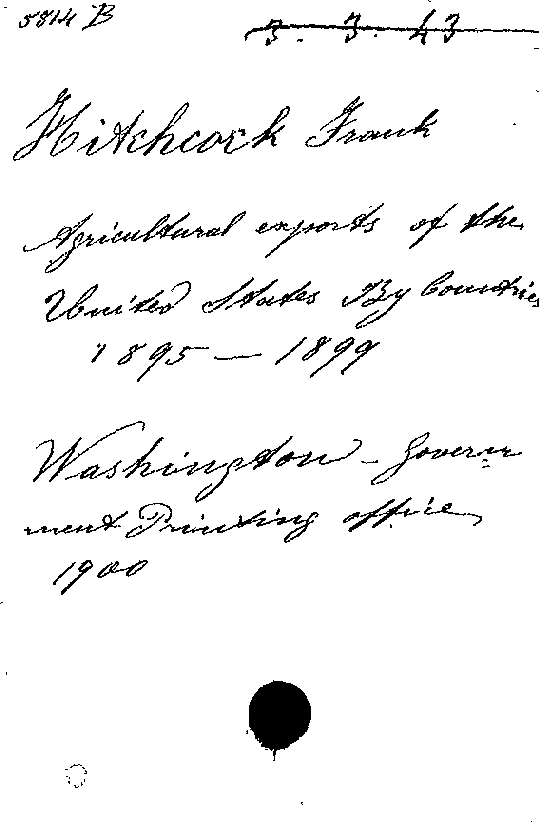 5814 B
3. 3. 43
Hitchcock Frank
Agricultural exports of the
United States By Countries
1895 — 1899
Washington - Govern
ment Printing office
1900